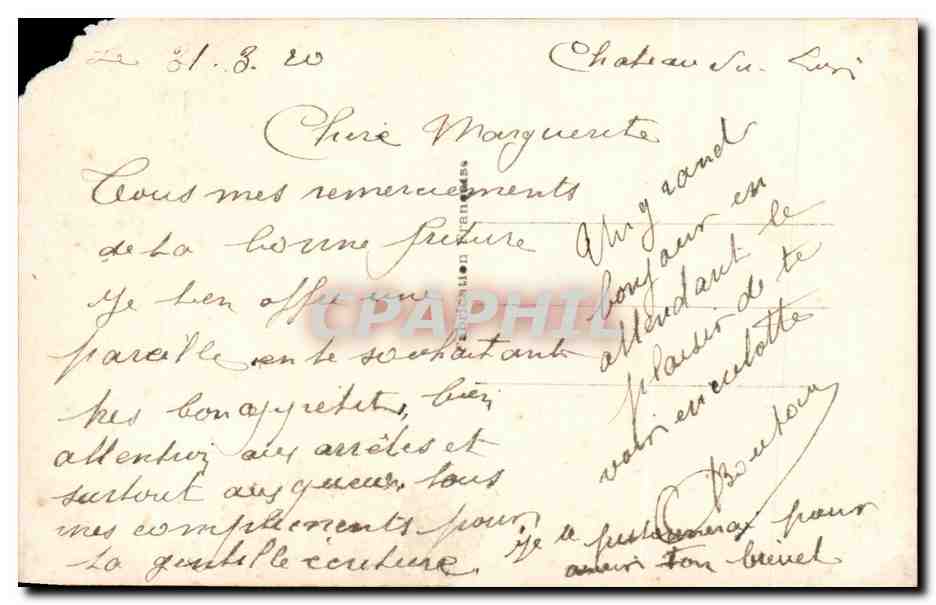 Le 31.3.20
Chateau du
Chere Marguerite
Tous mes remerciements
de ta bonne friture
Je ten offre une
pareille en te souhaitant
tres bon appretit, bien
attention aux arrêtes et
surtout aux queues, tous
mes compliements pour
ta gentille
Un grand
bonjour en
attendant le
plaisir de te
voir en culotte
Je te pour
ton brevet
Fabrication Française
CPAPHIL